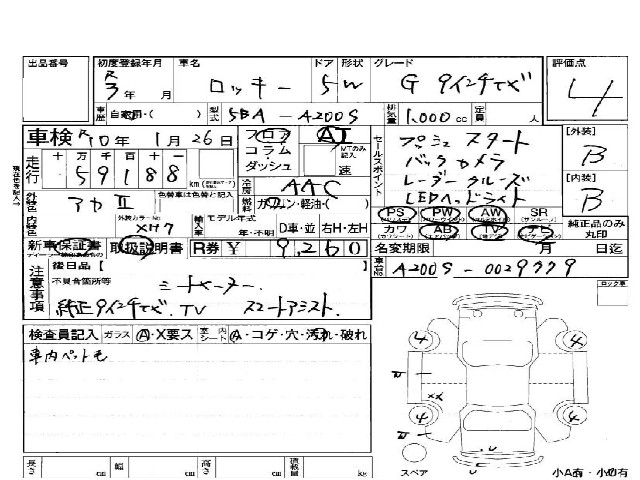 出品番号 初度登録年月 車名 ドア 形状 グレード 評価点
R3年 月 ロッキー 5 W G 9インチナビ 4
車歴 自家用・( ) 型式 5BA-A200S 排気量 1,000 cc 定員 人
車検 R10年 1月26日 フロア AT セールスポイント プッシュスタート [外装]
走行 十 万 千 百 十 一 コラム MTのみ記入 バックカメラ B
59188 km ダッシュ 速 レーダークルーズ [内装]
冷房 AAC LEDヘッドライト B
外装色 アカII 色替車は色替と記入 燃料 ガソリン・軽油・( ) PS PW AW SR
内装色 外装カラーNo XH7 輸入車 モデル年式 年・不明 D車・並 右H・左H カワ AB TV ナビ 純正品のみ丸印
新車保証書 取扱説明書 R券 ¥ 9,260 名変期限 月 日迄
注意事項 後日品【 】 車台No A200S-0029779
不具合箇所等 シートヒーター. ロック車
純正9インチナビ. TV スマートアシスト.
検査員記入 ガラス A・X要ス 室内シート A・コゲ・穴・汚れ・破れ
車内ペット毛
4 4
4 4
XX
U
U
スペア 小A有・小U有
長さ cm 幅 cm 高さ cm 積載量 kg